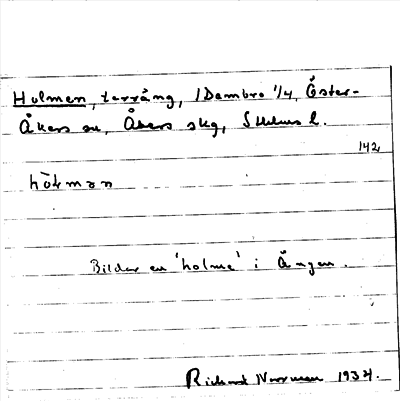 Holmen, terräng, 1 Dambro 1/4, Öster-
Åkers sn, Åkers skg, Sthlms l.
142
hòlmən
Bildar en 'holme' i Ängen.
Richard Norrman 1934.